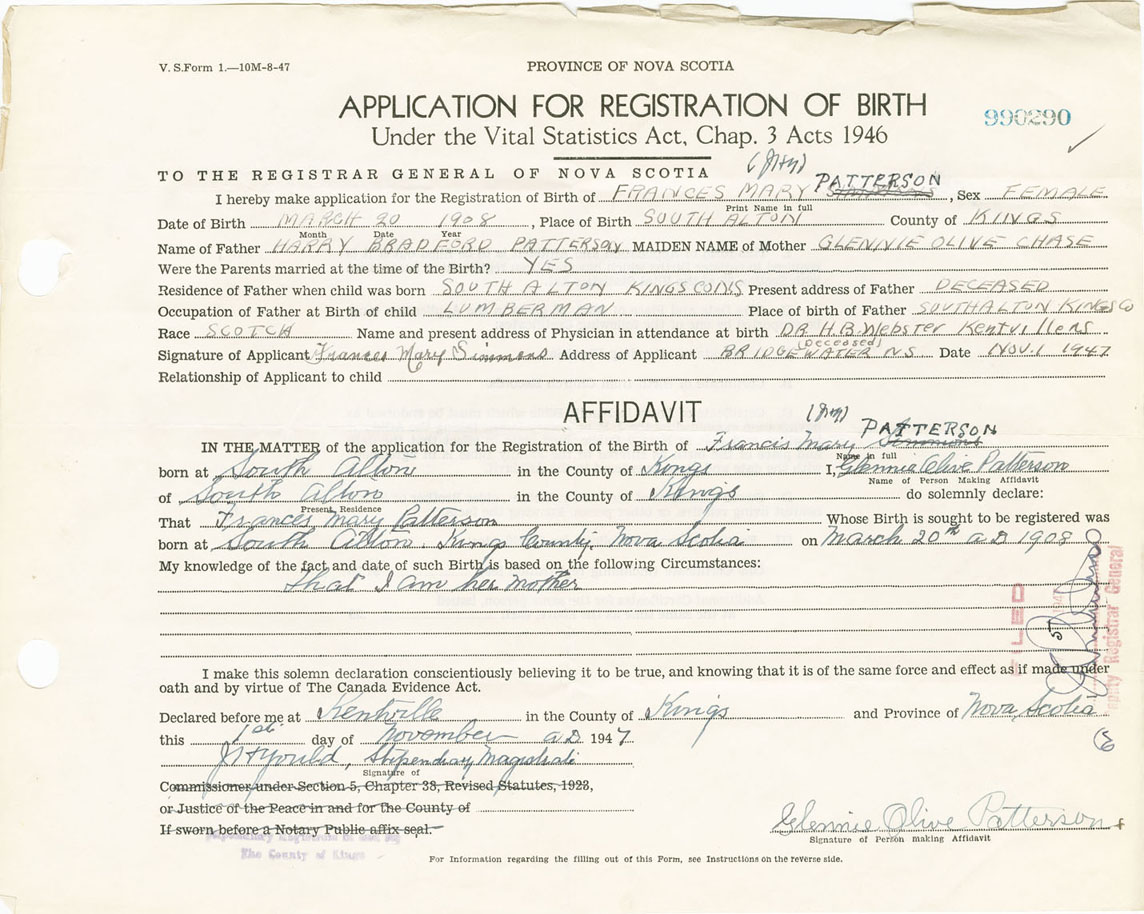 V. S. Form 1.—10M-8-47
PROVINCE OF NOVA SCOTIA
APPLICATION FOR REGISTRATION OF BIRTH
990290
Under the Vital Statistics Act, Chap. 3 Acts 1946
TO THE REGISTRAR GENERAL OF NOVA SCOTIA
I hereby make application for the Registration of Birth of FRANCES MARY PATTERSON, Sex FEMALE
Print Name in full
Date of Birth MARCH 20 1908, Place of Birth SOUTH ALTON County of KINGS
Month Date Year
Name of Father HARRY BRADFORD PATTERSON MAIDEN NAME of Mother GLENNIE OLIVE CHASE
Were the Parents married at the time of the Birth? YES
Residence of Father when child was born SOUTH ALTON KINGS CO NS Present address of Father DECEASED
Occupation of Father at Birth of child LUMBERMAN Place of birth of Father SOUTH ALTON KINGS CO
Race SCOTCH Name and present address of Physician in attendance at birth DR H.B. Webster Kentville NS
(Deceased)
Signature of Applicant Frances Mary Simmons Address of Applicant BRIDGEWATER NS Date NOV. 1 1947
Relationship of Applicant to child
AFFIDAVIT
IN THE MATTER of the application for the Registration of the Birth of Francis Mary Simmons PATTERSON
Name in full
born at South Alton in the County of Kings I, Glennie Olive Patterson
Name of Person Making Affidavit
of South Alton in the County of Kings do solemnly declare:
Present Residence
That Frances Mary Patterson Whose Birth is sought to be registered was
born at South Alton. Kings County. Nova Scotia on March 20th a.D 1908
My knowledge of the fact and date of such Birth is based on the following Circumstances:
that I am her mother
FILED
Deputy Registrar General
I make this solemn declaration conscientiously believing it to be true, and knowing that it is of the same force and effect as if made under
oath and by virtue of The Canada Evidence Act.
Declared before me at Kentville in the County of Kings and Province of Nova Scotia
this 1st day of November a.D 1947.
Stipendiary Magistrate
Signature of
Commissioner under Section 5, Chapter 38, Revised Statutes, 1923,
or Justice of the Peace in and for the County of
If sworn before a Notary Public affix seal.
The County of Kings
Glennie Olive Patterson
Signature of Person making Affidavit
For Information regarding the filling out of this Form, see Instructions on the reverse side.